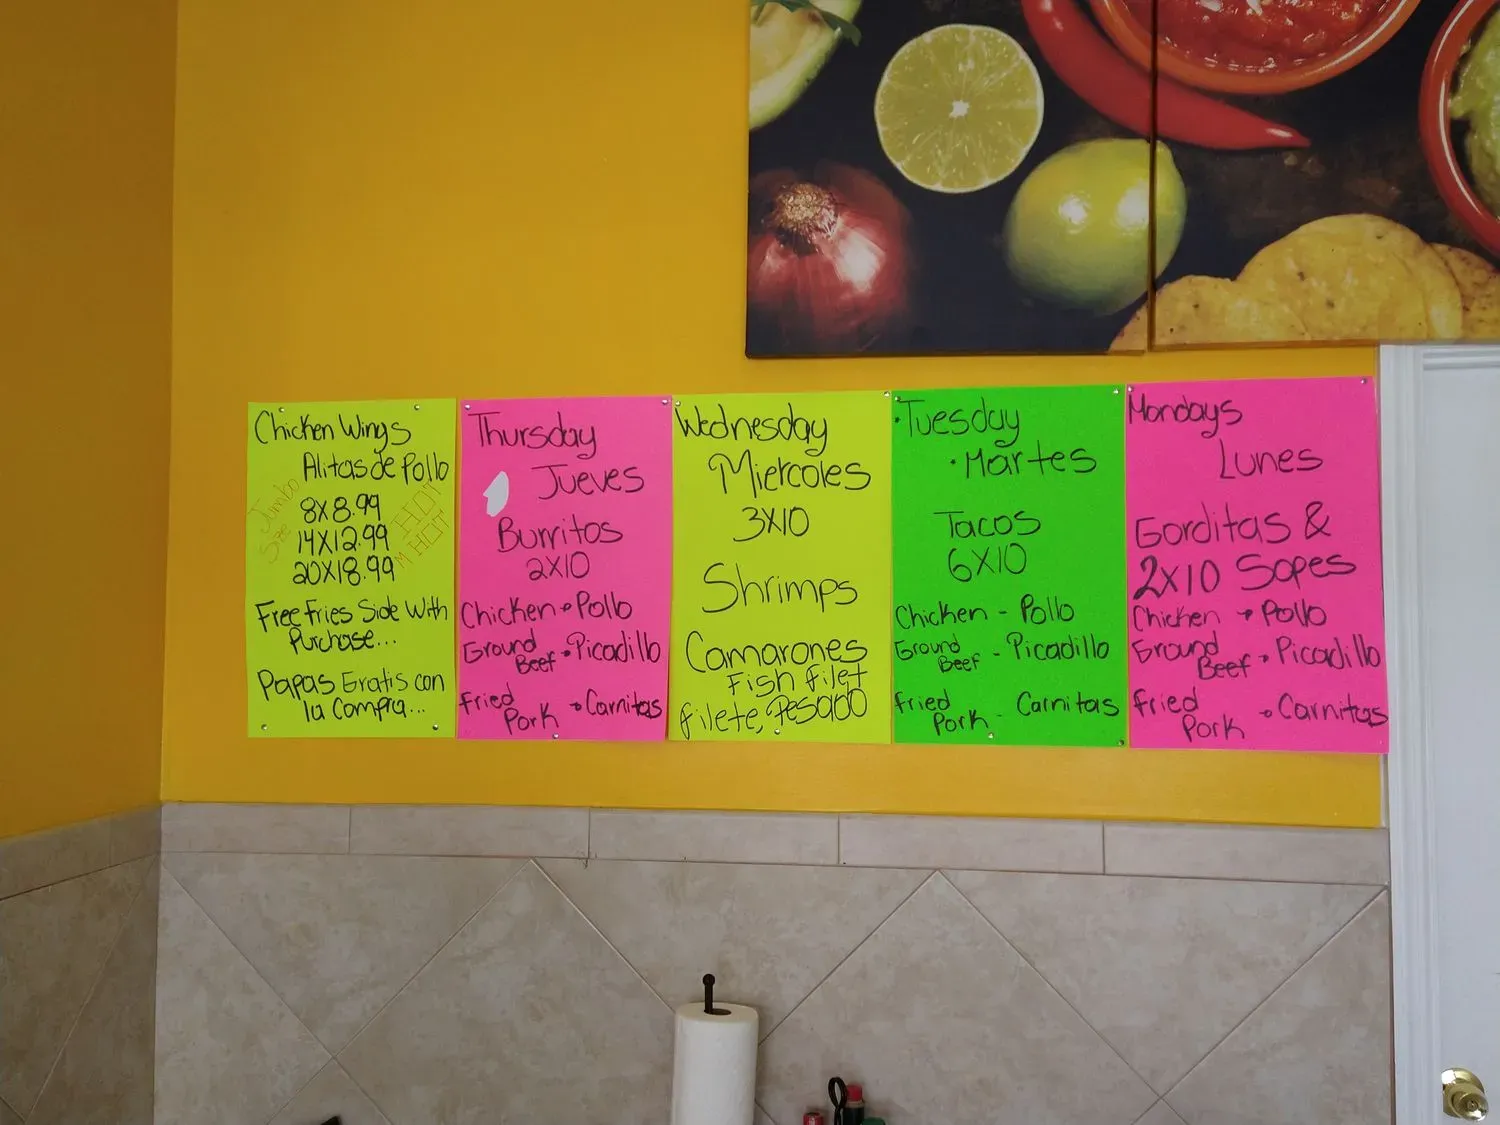 Chicken Wings
Alitas de Pollo
Jumbo
Size
8X8.99
14X12.99
20X18.99
HOT
M HOT
Free Fries Side With
Purchase...
Papas Gratis con
la Compra...
Thursday
Jueves
Burritos
2X10
Chicken → Pollo
Ground
Beef → Picadillo
Fried
Pork → Carnitas
Wednesday
Miercoles
3X10
Shrimps
Camarones
Fish filet
filete, Pescado
·Tuesday
·Martes
Tacos
6X10
Chicken - Pollo
Ground
Beef - Picadillo
Fried
Pork - Carnitas
Mondays
Lunes
Gorditas &
2X10 Sopes
Chicken → Pollo
Ground
Beef → Picadillo
Fried
Pork → Carnitas